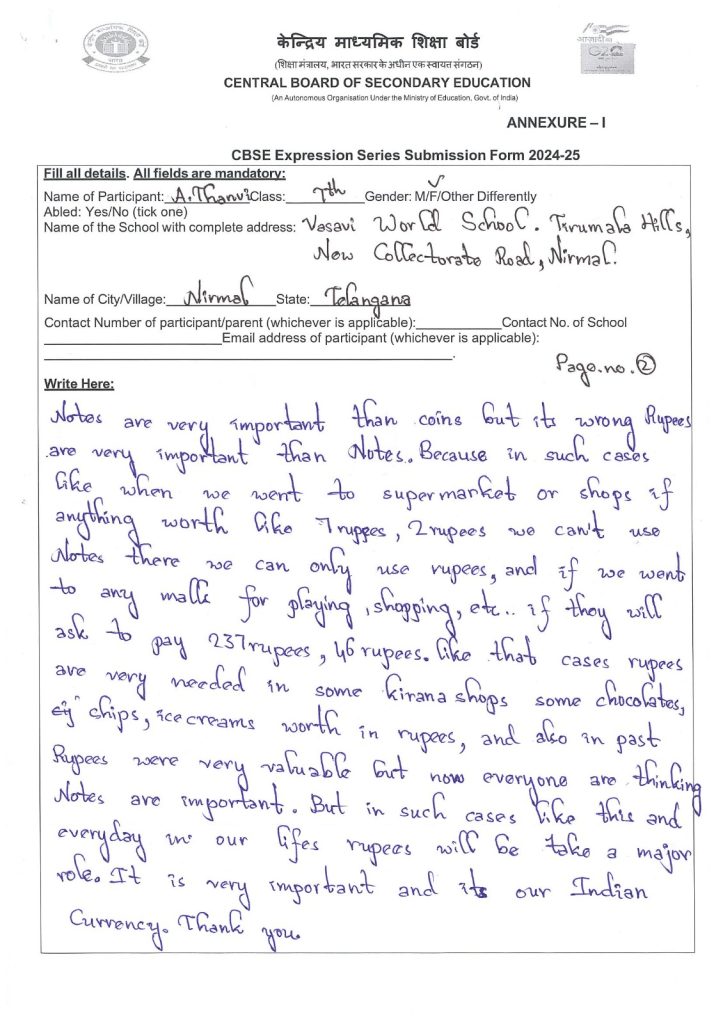 केन्द्रिय माध्यमिक शिक्षा बोर्ड
(शिक्षा मंत्रालय, भारत सरकार के अधीन एक स्वायत संगठन)
CENTRAL BOARD OF SECONDARY EDUCATION
(An Autonomous Organisation Under the Ministry of Education, Govt. of India)
ANNEXURE – I
CBSE Expression Series Submission Form 2024-25
Fill all details. All fields are mandatory:
Name of Participant: A.Thanvi Class: 7th Gender: M/F/Other Differently
Abled: Yes/No (tick one)
Name of the School with complete address: Vasavi World School. Tirumala Hills,
New Collectorate Road, Nirmal.
Name of City/Village: Nirmal State: Telangana
Contact Number of participant/parent (whichever is applicable):____________Contact No. of School
____________Email address of participant (whichever is applicable):
____________.
Page.no.②
Write Here:
Notes are very important than coins but its wrong Rupees
are very important than Notes. Because in such cases
like when we went to supermarket or shops if
anything worth like 7 rupees, 2 rupees we can't use
Notes there we can only use rupees, and if we went
to any malls for playing, shopping, etc.. if they will
ask to pay 237 rupees, 46 rupees. like that cases rupees
are very needed in some kirana shops some chocolates,
chips, ice creams worth in rupees, and also in past
Rupees were very valuable but now everyone are thinking
Notes are important. But in such cases like this and
everyday in our lifes rupees will be take a major
role. It is very important and its our Indian
Currency. Thank you.